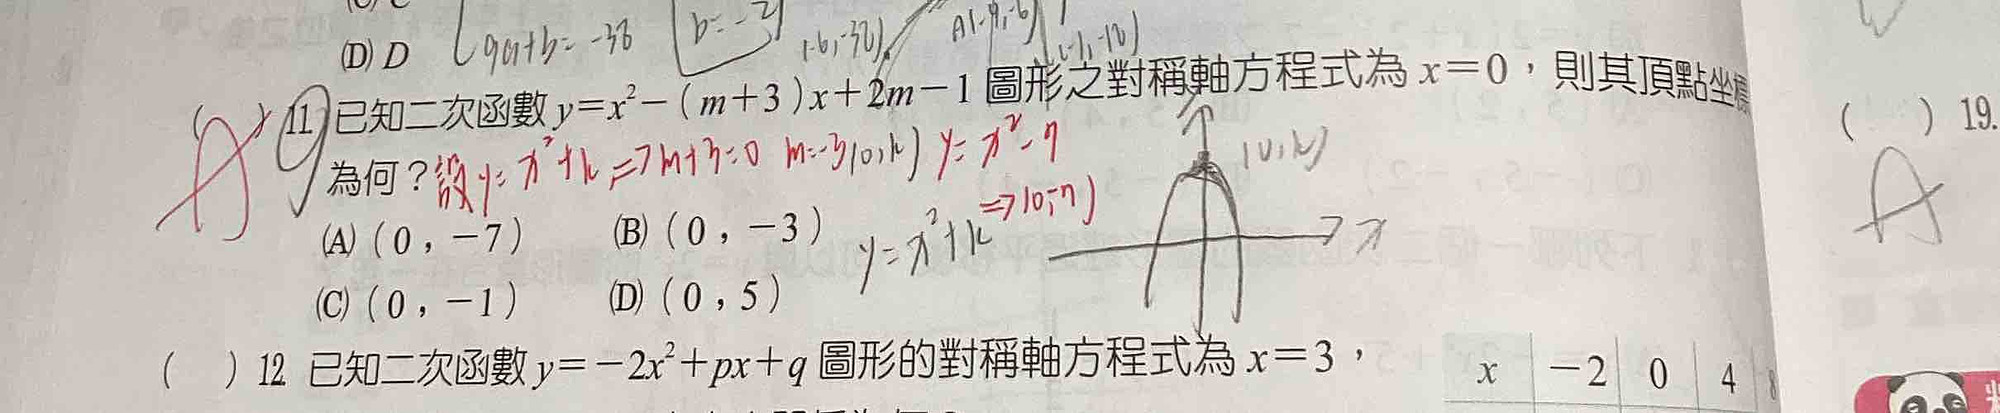 (D) D
9a+b=-38
b=-2
(-6,-32)
A(-9,-6)
( ) 11 已知二次函數 y=x²-(m+3)x+2m-1 圖形之對稱軸方程式為 x=0，則其頂點坐標
A
為何？設y=x²+k => m+3=0 m=-3 (0,k) y=x²-7
=> (0,-7)
(0,k)
(A) (0，-7) (B) (0，-3)
y=x²+k
x
(C) (0，-1) (D) (0，5)
( ) 12 已知二次函數 y=-2x²+px+q 圖形的對稱軸方程式為 x=3，
x -2 0 4
( ) 19.
A